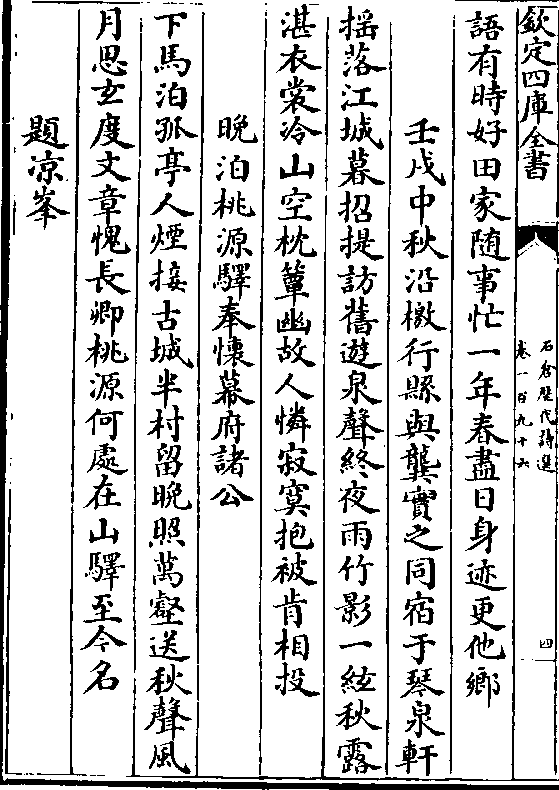 欽定四庫全書
石倉歷代詩選
卷一百九十六
四
語有時好田家随事忙一年春盡日身迹更他鄉
壬戌中秋沿檄行縣與龔實之同宿于琴泉軒
揺落江城暮招提訪舊遊泉聲終夜雨竹影一絃秋露
湛衣裳冷山空枕簟幽故人憐寂寞抱被肯相投
晚泊桃源驛奉懷幕府諸公
下馬泊孤亭人煙接古城半村留晚照萬壑送秋聲風
月思玄度文章愧長卿桃源何處在山驛至今名
題凉峯